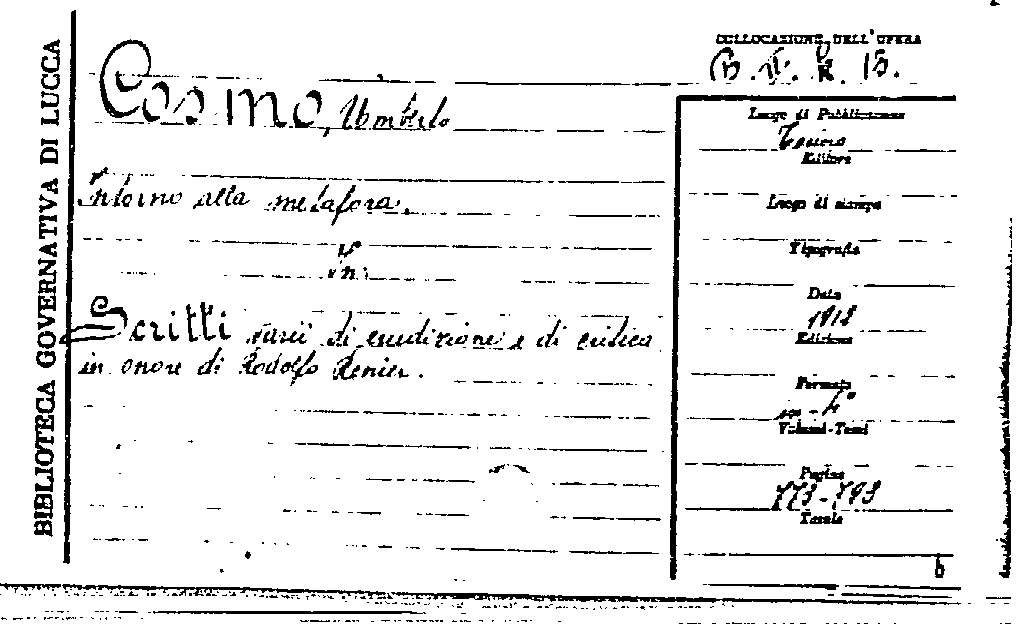 BIBLIOTECA GOVERNATIVA DI LUCCA
COLLOCAZIONE DELL'OPERA
B. II. K. 15.
Cosmo, Umberto
Intorno alla metafora.
in:
Scritti varii di erudizione e di critica
in onore di Rodolfo Renier.
Luogo di Pubblicazione
Torino
Editore
Luogo di stampa
Tipografia
Data
1912
Edizione
Formato
in-4°
Volumi-Tomi
Pagine
773-793
Tavole
b